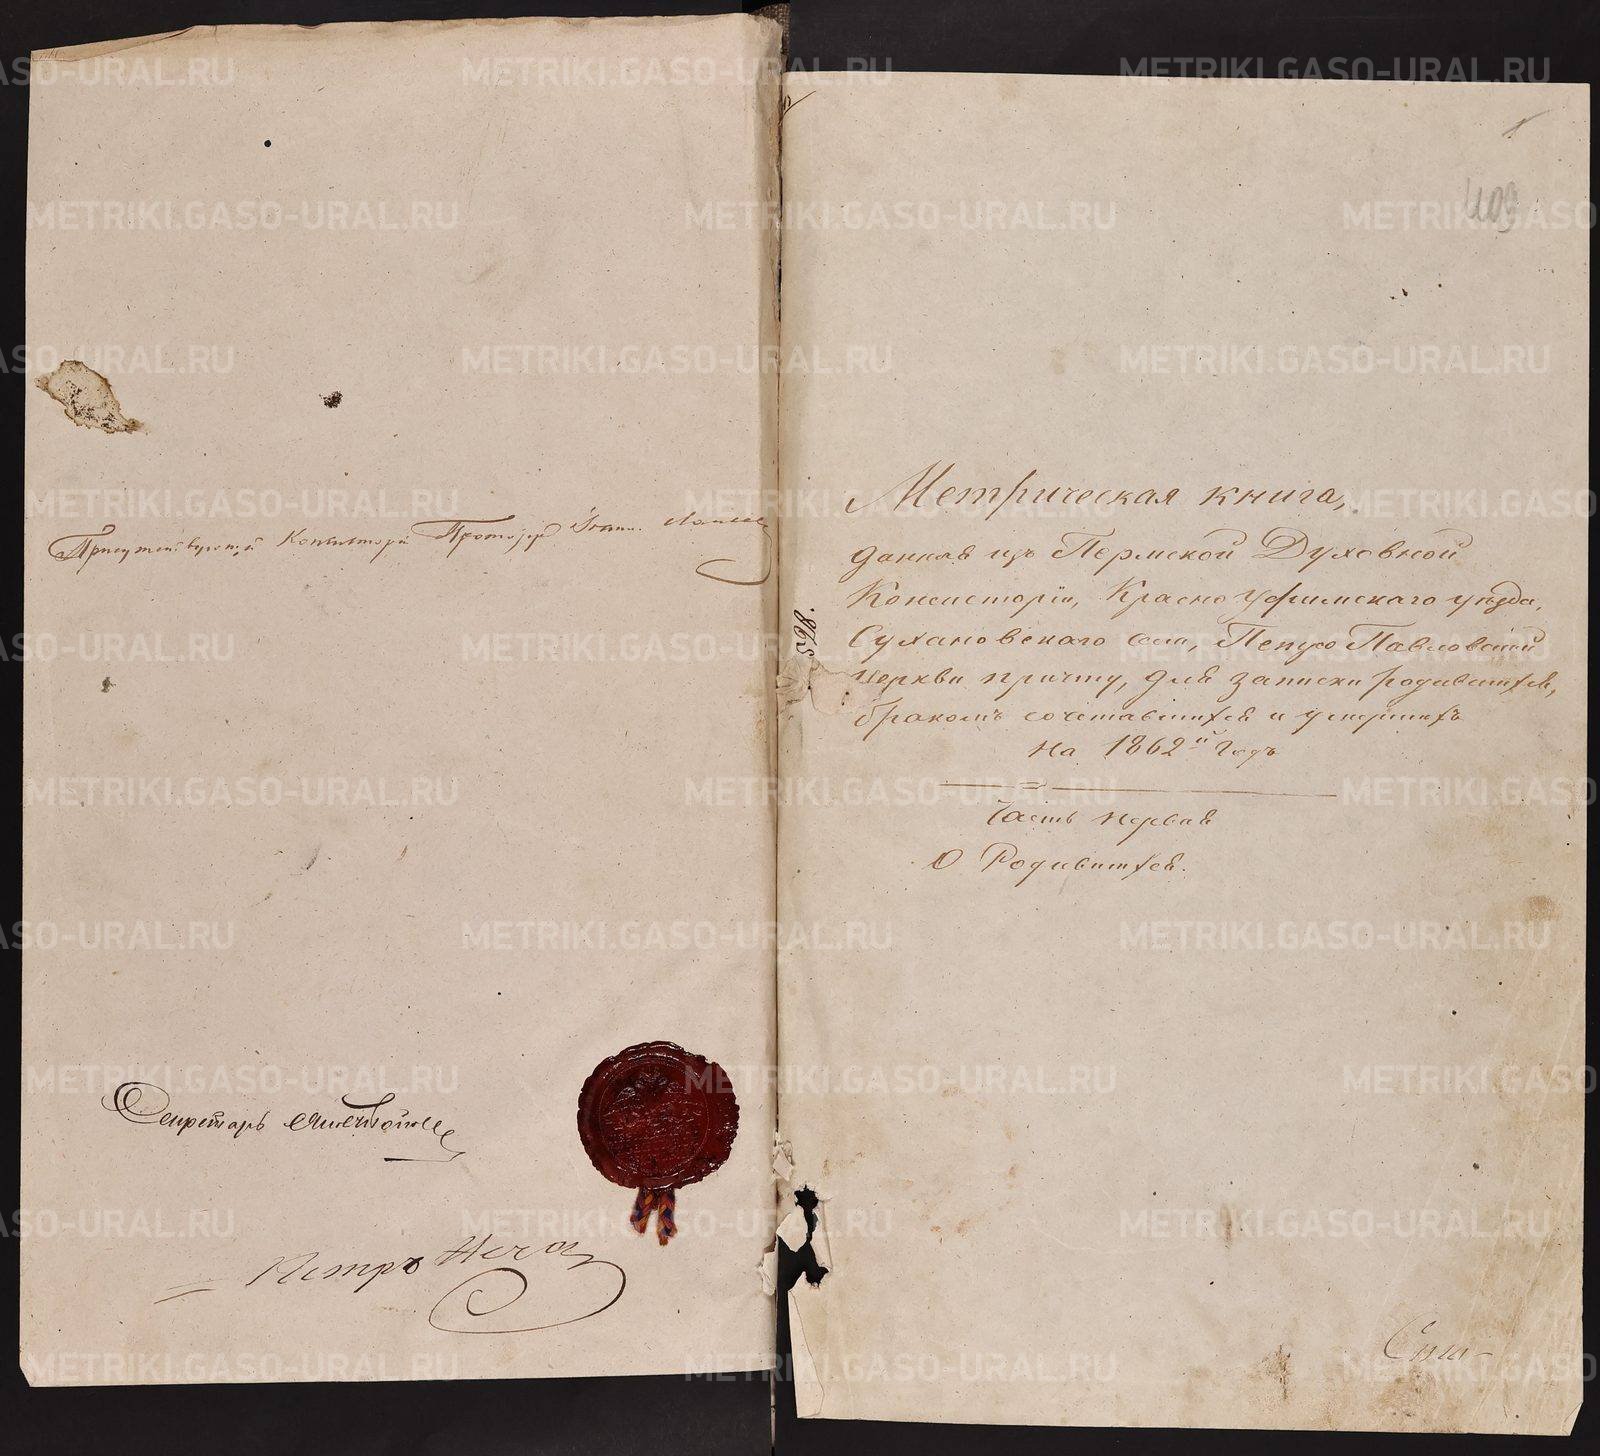 Присутствующій Консисторіи Протоіерей Іоаннъ
Секретарь
Петръ
409
Метрическая книга,
данная изъ Пермской Духовной
Консисторіи, Красноуфимскаго уѣзда,
Сухановскаго села, Петро Павловской
церкви причту, для записки родившихся,
бракомъ сочетавшихся и умершихъ
на 1862й годъ
Часть первая
О Родившихся.
METRIKI.GASO-URAL.RU